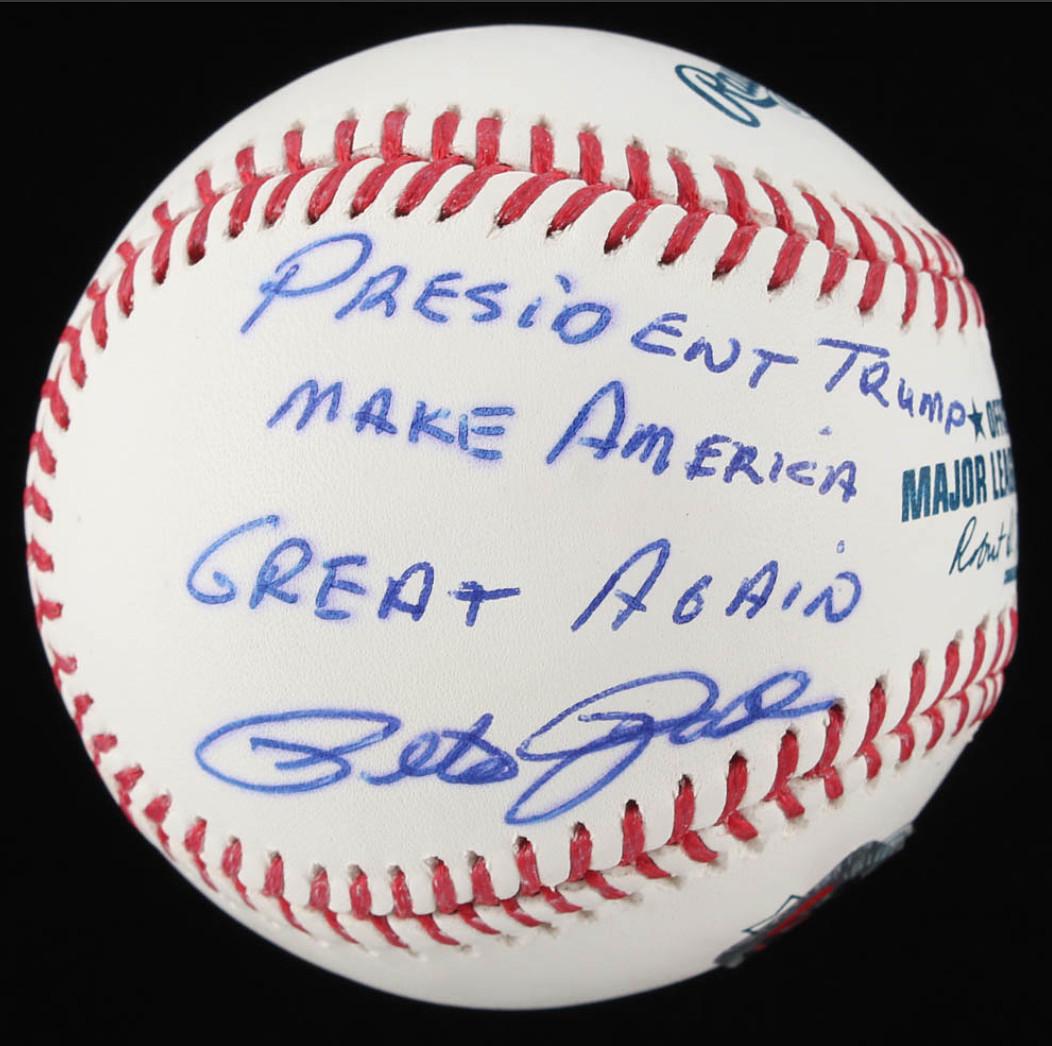 PRESIDENT TRUMP
MAKE AMERICA
GREAT AGAIN
Pete Rose
MAJOR
Robert